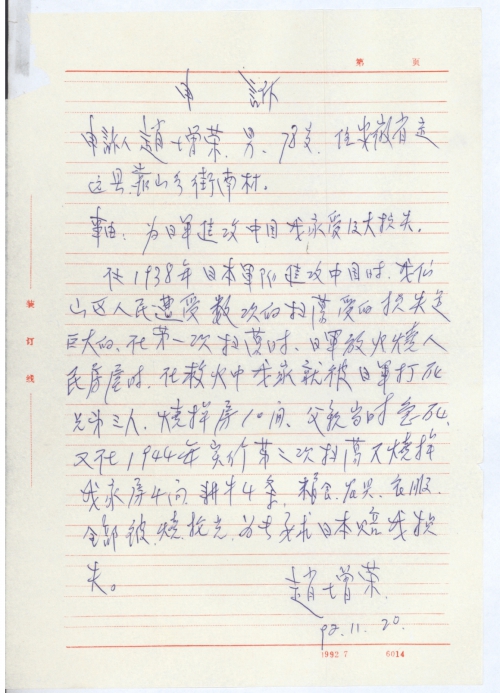 第 页
申 訴
申訴人 趙增荣、男、78岁、住安徽省定
远县、靠山乡街南村。
事由：为日軍進攻中国我家受巨大损失。
在1938年日本軍队進攻中国时、我们
山区人民遭受数次的扫荡受的损失是
巨大的、在第一次扫荡时、日軍放火燒人
民房屋时、在救火中我家就被日軍打死
兄弟三人、燒掉房10间、父親当时急死、
又在1944年实行第三次扫荡又燒掉
我家房4间 耕牛4条、粮食、农具、衣服、
全部被燒抢光、为此要求日本赔我损
失。
趙增荣
92.11.20.
装
订
线
1992.7 6014